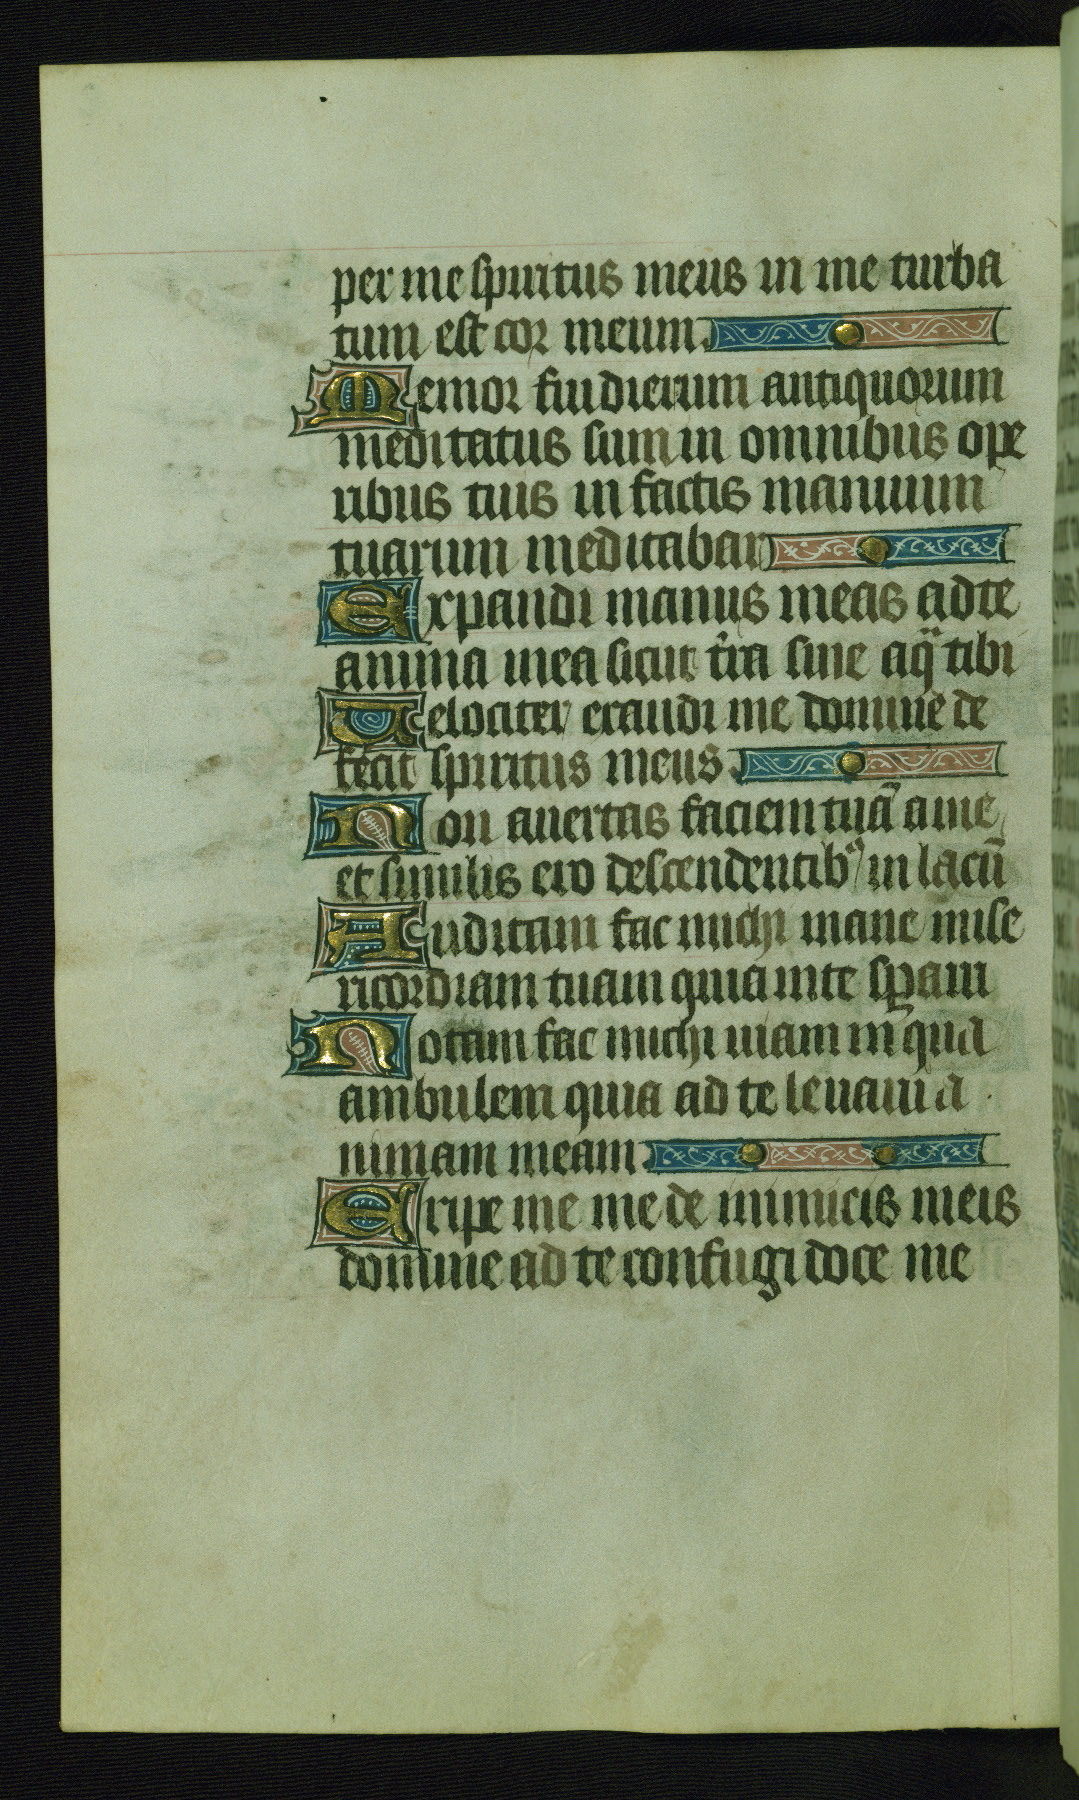 per me spiritus meus in me turba
tum est cor meum.
Memor fui dierum antiquorum
meditatus sum in omnibus ope
ribus tuis in factis manuum
tuarum meditabar
Expandi manus meas ad te
anima mea sicut t̄ra sine aq̈ tibi
Uelociter exaudi me domine de
fecit spiritus meus.
Non auertas faciem tuā a me
et similis ero descendentibꝰ in lacū
Auditam fac michi mane mise
ricordiam tuam quia in te sꝑaui
Notam fac michi uiam in qua
ambulem quia ad te leuaui a
nimam meam.
Eripe me me de inimicis meis
domine ad te confugi doce me